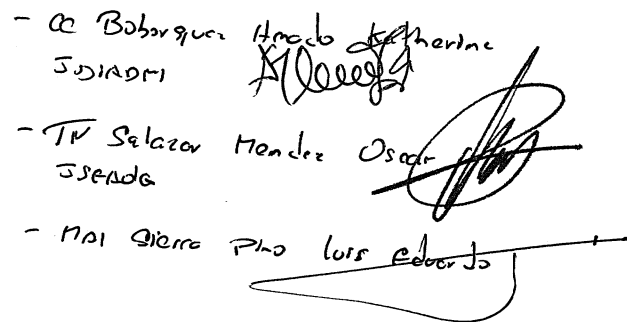 - CC Bohorquez Amado Katherine
JDIADMI
- TN Salazar Mendez Oscar
JSEADG
- MA1 Sierra Pino Luis Eduardo